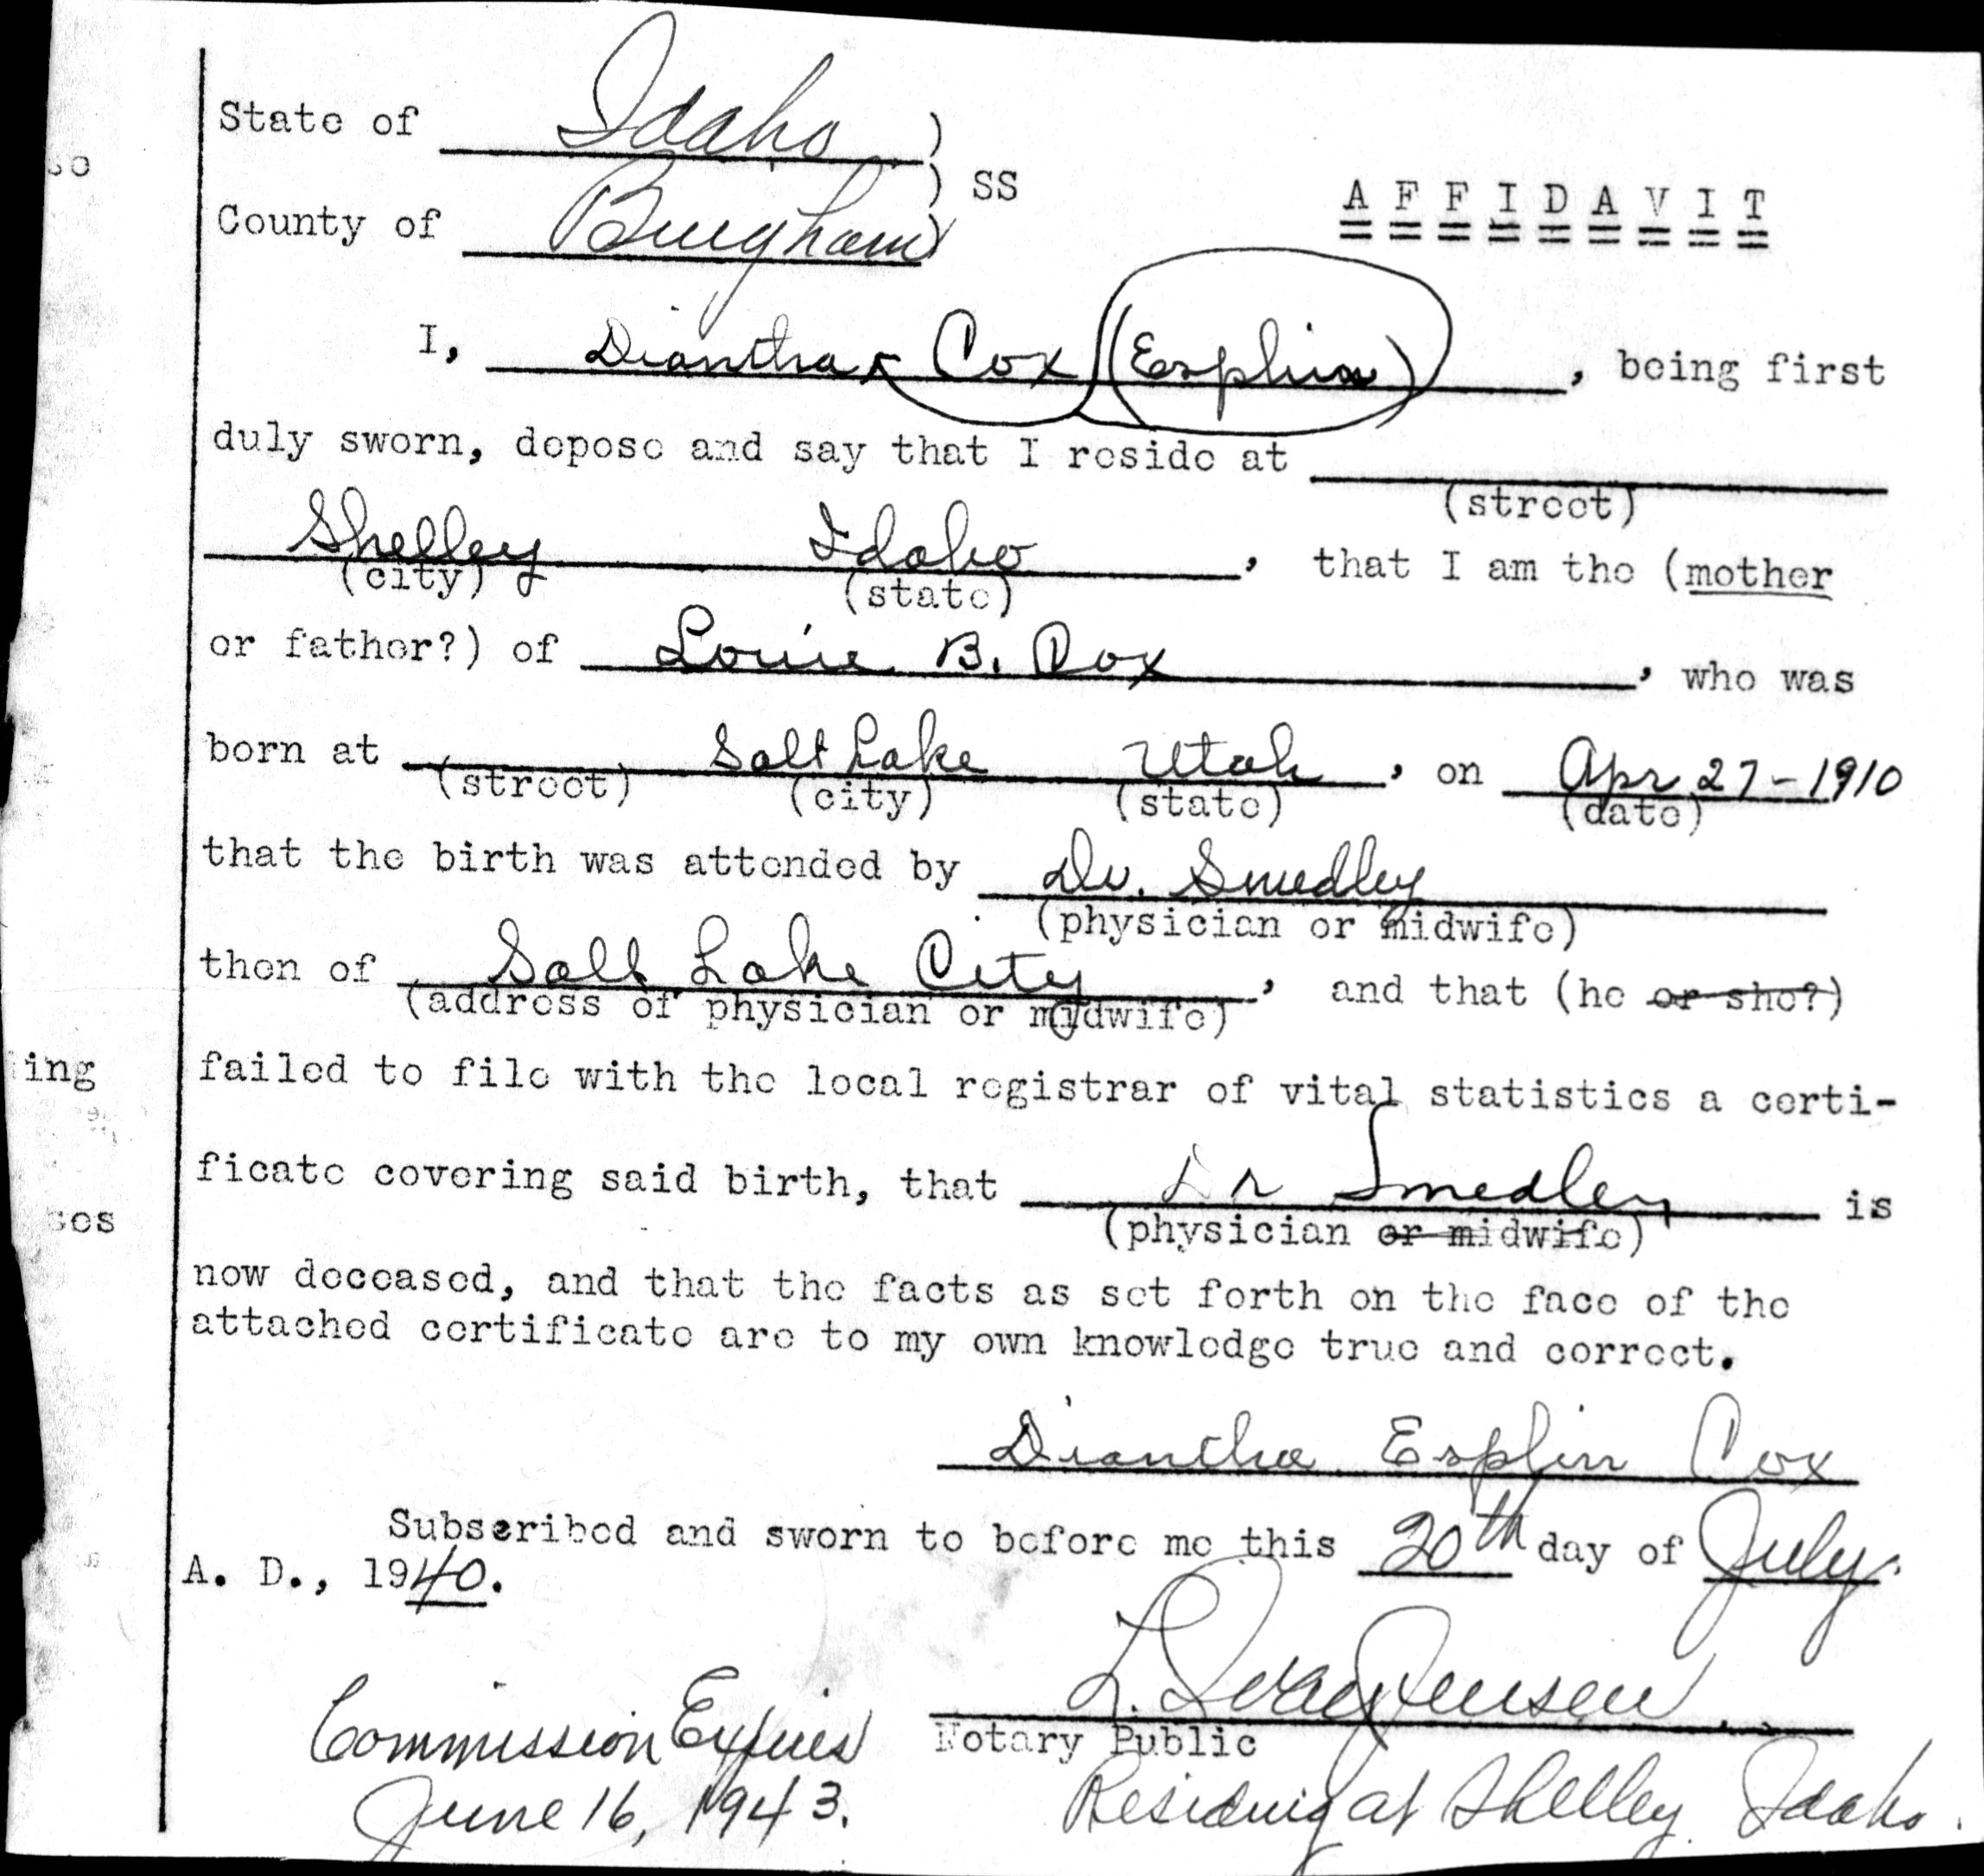 State of Idaho )
) SS
County of Bingham )
A F F I D A V I T
I, Diantha Cox (Esplin), being first
duly sworn, depose and say that I reside at
(street)
Shelley Idaho, that I am the (mother
(city) (state)
or father?) of Louie B. Cox, who was
born at Salt Lake Utah, on Apr 27-1910
(street) (city) (state) (date)
that the birth was attended by Dr. Smedley
(physician or midwife)
then of Salt Lake City, and that (he or she?)
(address of physician or midwife)
ing
failed to file with the local registrar of vital statistics a certi-
ficate covering said birth, that Dr Smedley is
(physician or midwife)
now deceased, and that the facts as set forth on the face of the
attached certificate are to my own knowledge true and correct.
Diantha Esplin Cox
Subscribed and sworn to before me this 20th day of July.
A. D., 1940.
L. Jensen
Notary Public
Commission Expires
June 16, 1943.
Residing at Shelley, Idaho.